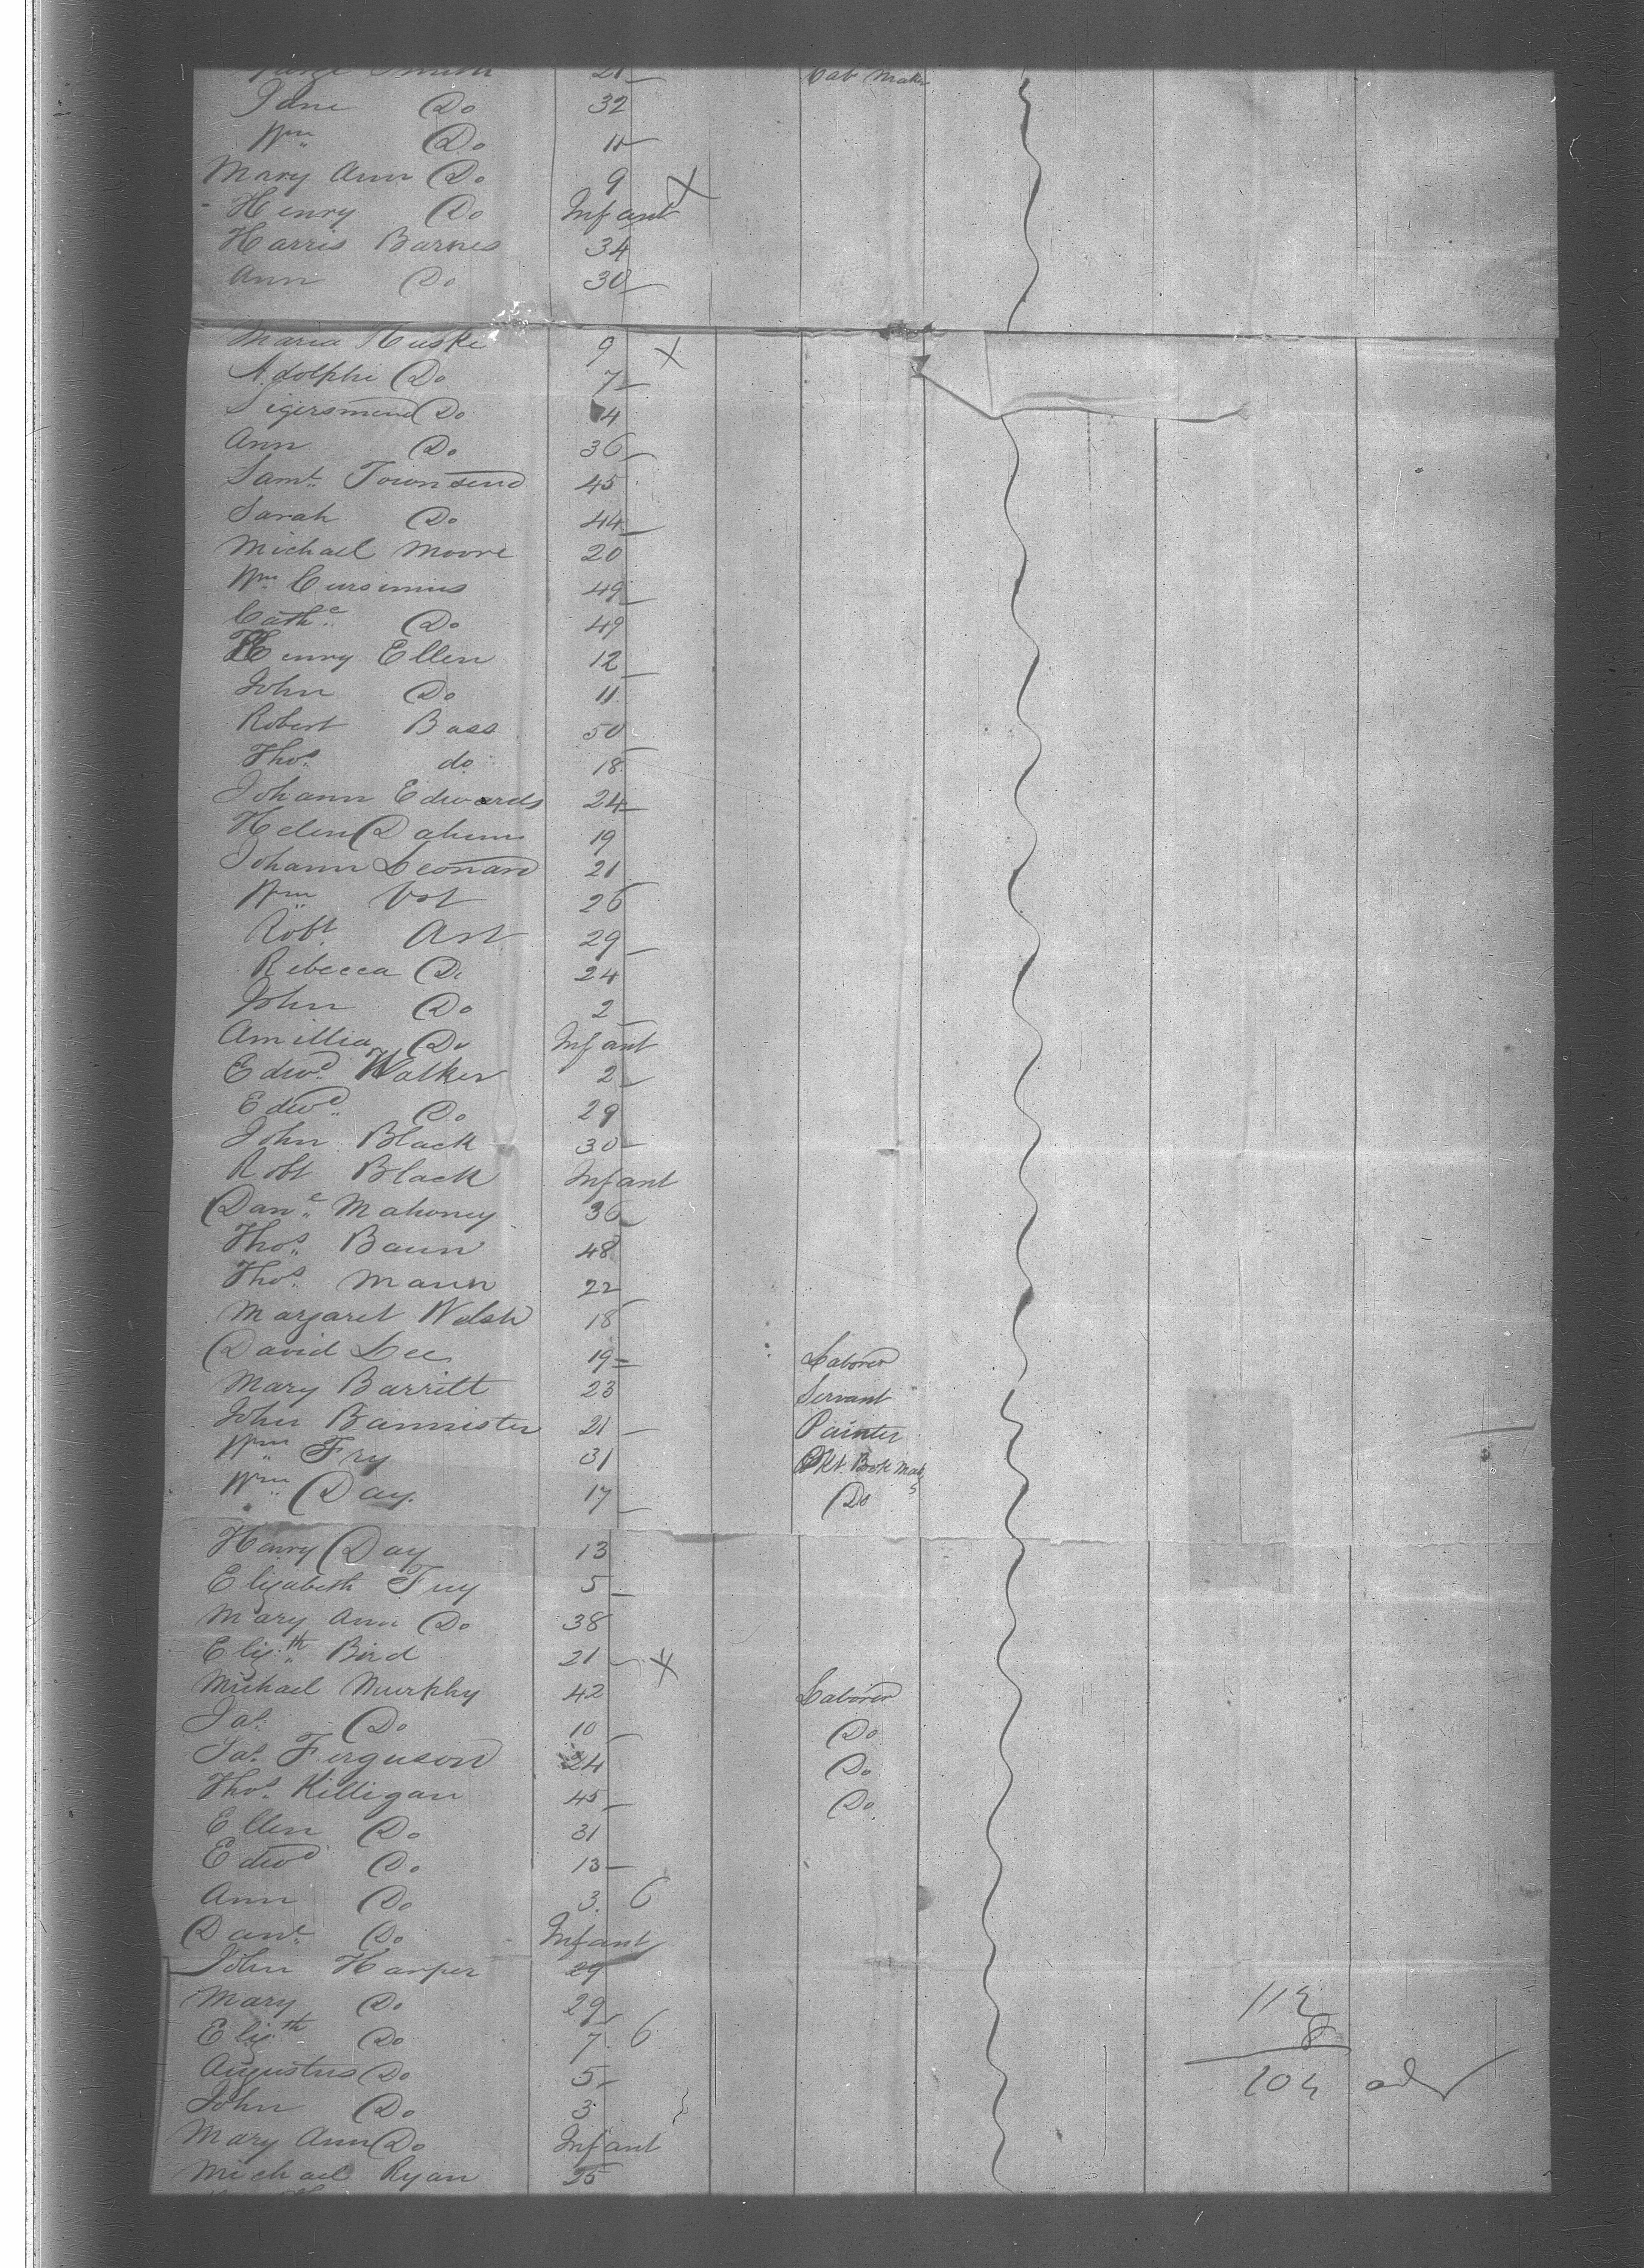 Smith 21 Cab Maker
Jane Do 32
Wm Do 11
Mary Ann Do 9 X
Henry Do Infant
Harris Barnes 34
Ann Do 30
Maria Huske 9 X
Adolphi Do 7
Sigersmend Do 4
Ann Do 36
Saml. Townsend 45
Sarah Do 44
Michael Moore 20
Wm 49
Cathe. Do 49
Henry Ellen 12
John Do 11
Robert Bass 50
Thos. do 18
Johann Edwards 24
Helen 19
Johann Leonard 21
Wm Vot 26
Robt. Art 29
Rebecca Do 24
John Do 2
Amillia Do Infant
Edwd. Walker 2
Edwd. Do 29
John Black 30
Robt Black Infant
Danl. Mahoney 36
Thos. Baun 48
Thos. Mann 22
Margaret Welsh 18
David Lee 19 Laborer
Mary Barritt 23 Servant
John Bannister 21 Painter
Wm Fry 31 Pkt. Book Mak
Wm Day. 17 Do
Henry Day 13
Elizabeth Fry 5
Mary Ann Do 38
Elizth. Bird 21 X
Michael Murphy 42 Laborer
Jas. Do 10 Do
Jas. Ferguson 24 Do
Thos. Killigan 45 Do
Ellen Do 31
Edwd Do 13
Ann Do 3. 6
Danl. Do Infant
John Harper 29
Mary Do 29
Elizth. Do 7. 6
Augustus Do 5
John Do 3
Mary Ann Do Infant
Michael Ryan 25
112
8
104 ad